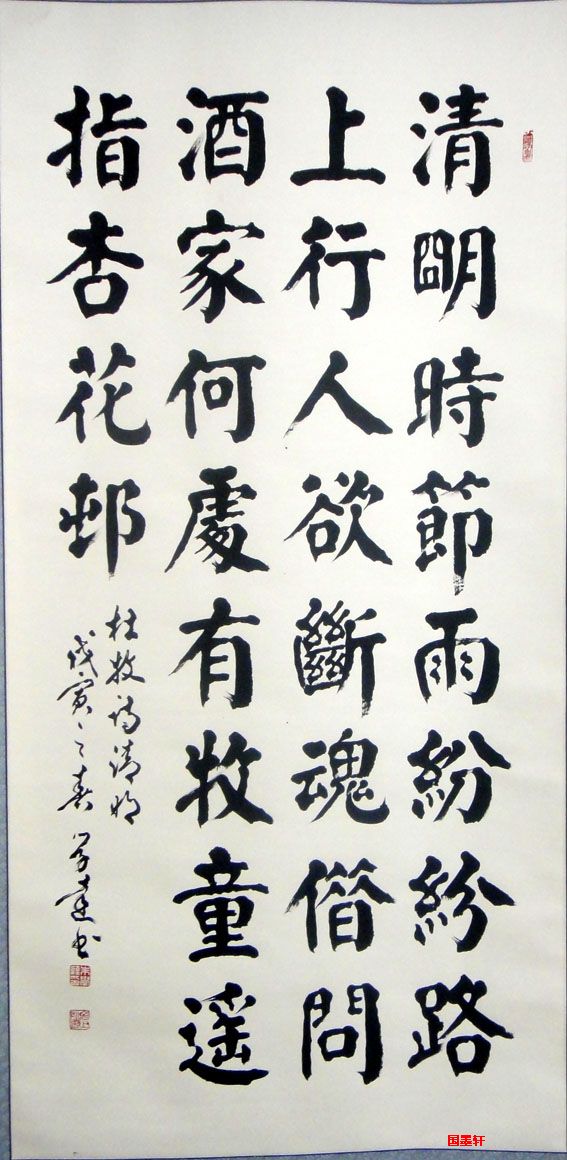 清明時節雨紛紛路
上行人欲斷魂借問
酒家何處有牧童遥
指杏花邨
杜牧詩清明
戊寅之春 學達书
国墨轩